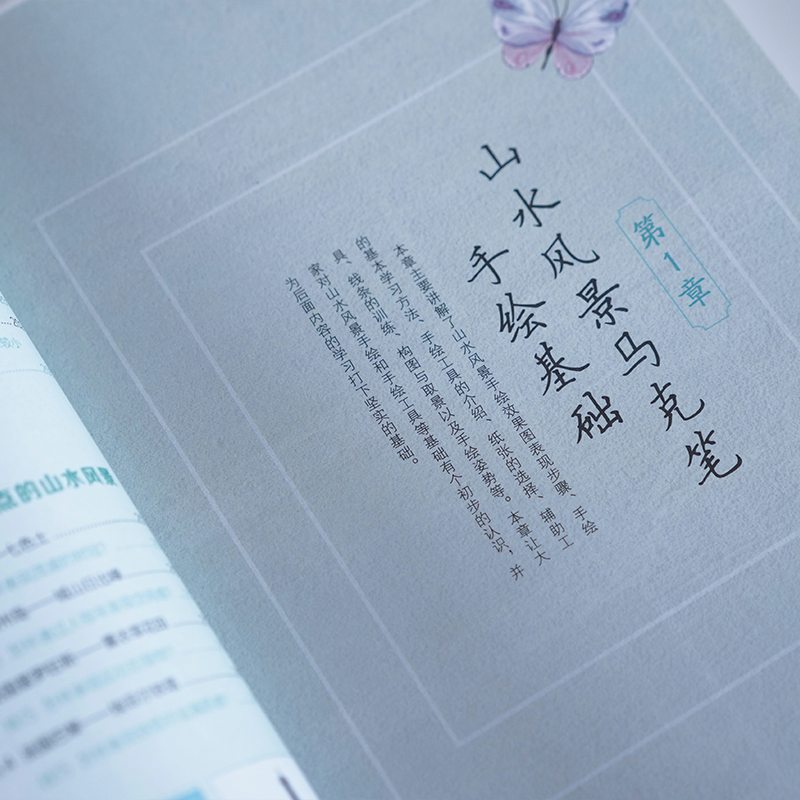 第1章
山水风景马克笔
手绘基础
本章主要讲解了山水风景手绘效果图表现步骤、手绘
的基本学习方法、手绘工具的介绍、纸张的选择、辅助工
具、线条的训练、构图与取景以及手绘姿势等。本章让大
家对山水风景手绘和手绘工具等基础有个初步的认识，并
为后面内容的学习打下坚实的基础。
点的山水风景